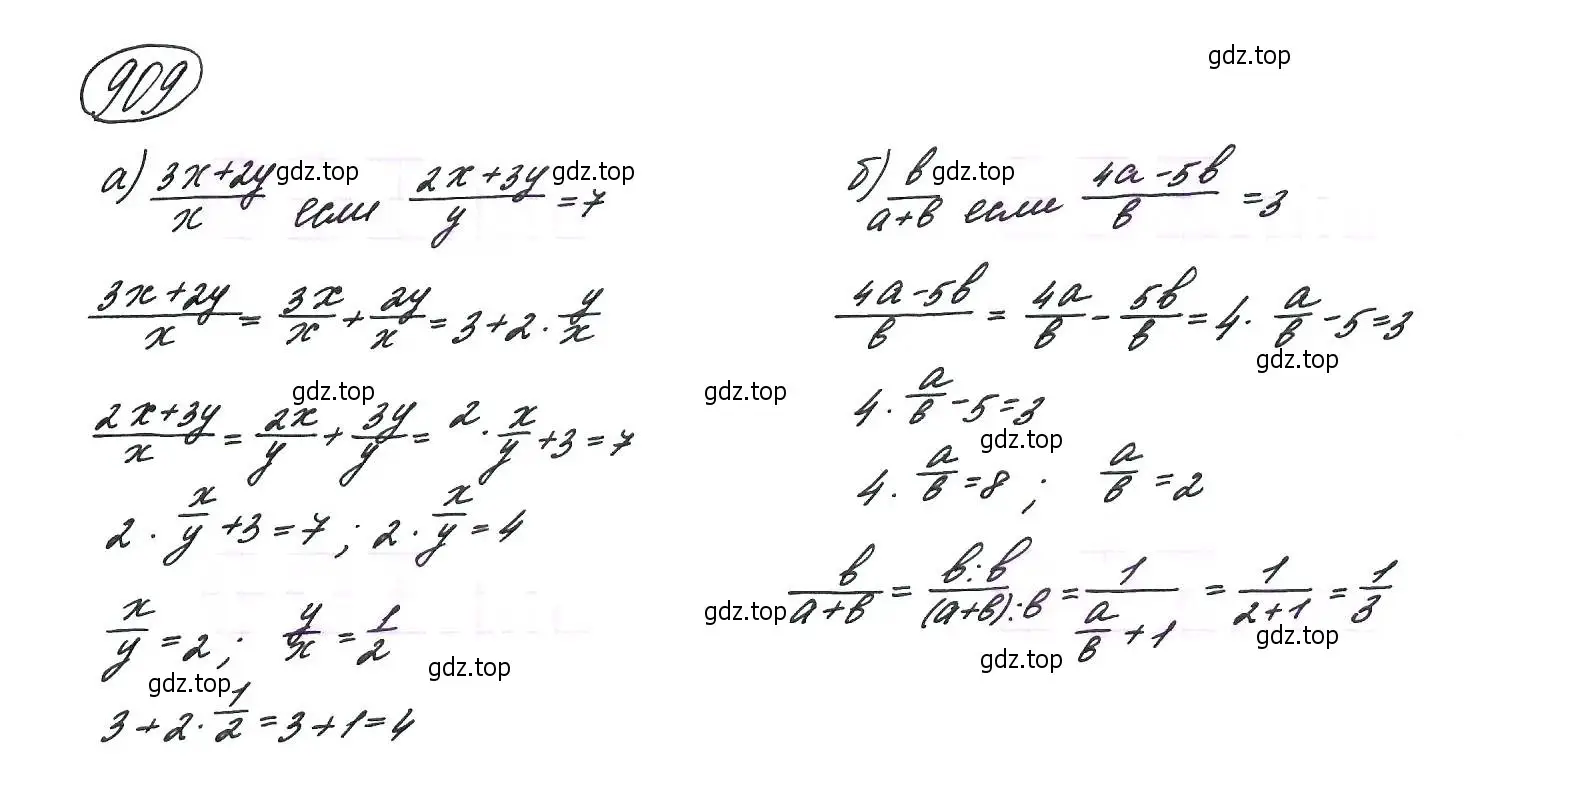 909
gdz.top
а) (3x+2y)/x если (2x+3y)/y = 7
gdz.top gdz.top
(3x+2y)/x = 3x/x + 2y/x = 3+2·y/x
gdz.top
(2x+3y)/x = 2x/y + 3y/y = 2·x/y+3=7
2·x/y+3=7; 2·x/y=4
x/y=2; y/x=1/2
gdz.top gdz.top
3+2·1/2=3+1=4
б) в/(а+в) если (4а-5в)/в = 3
gdz.top
(4а-5в)/в = 4а/в - 5в/в = 4·а/в-5=3
gdz.top
gdz.top
4·а/в-5=3
gdz.top
4·а/в=8; а/в=2
в/(а+в) = в:в/(а+в):в = 1/(а/в+1) = 1/(2+1) = 1/3
gdz.top gdz.top gdz.top